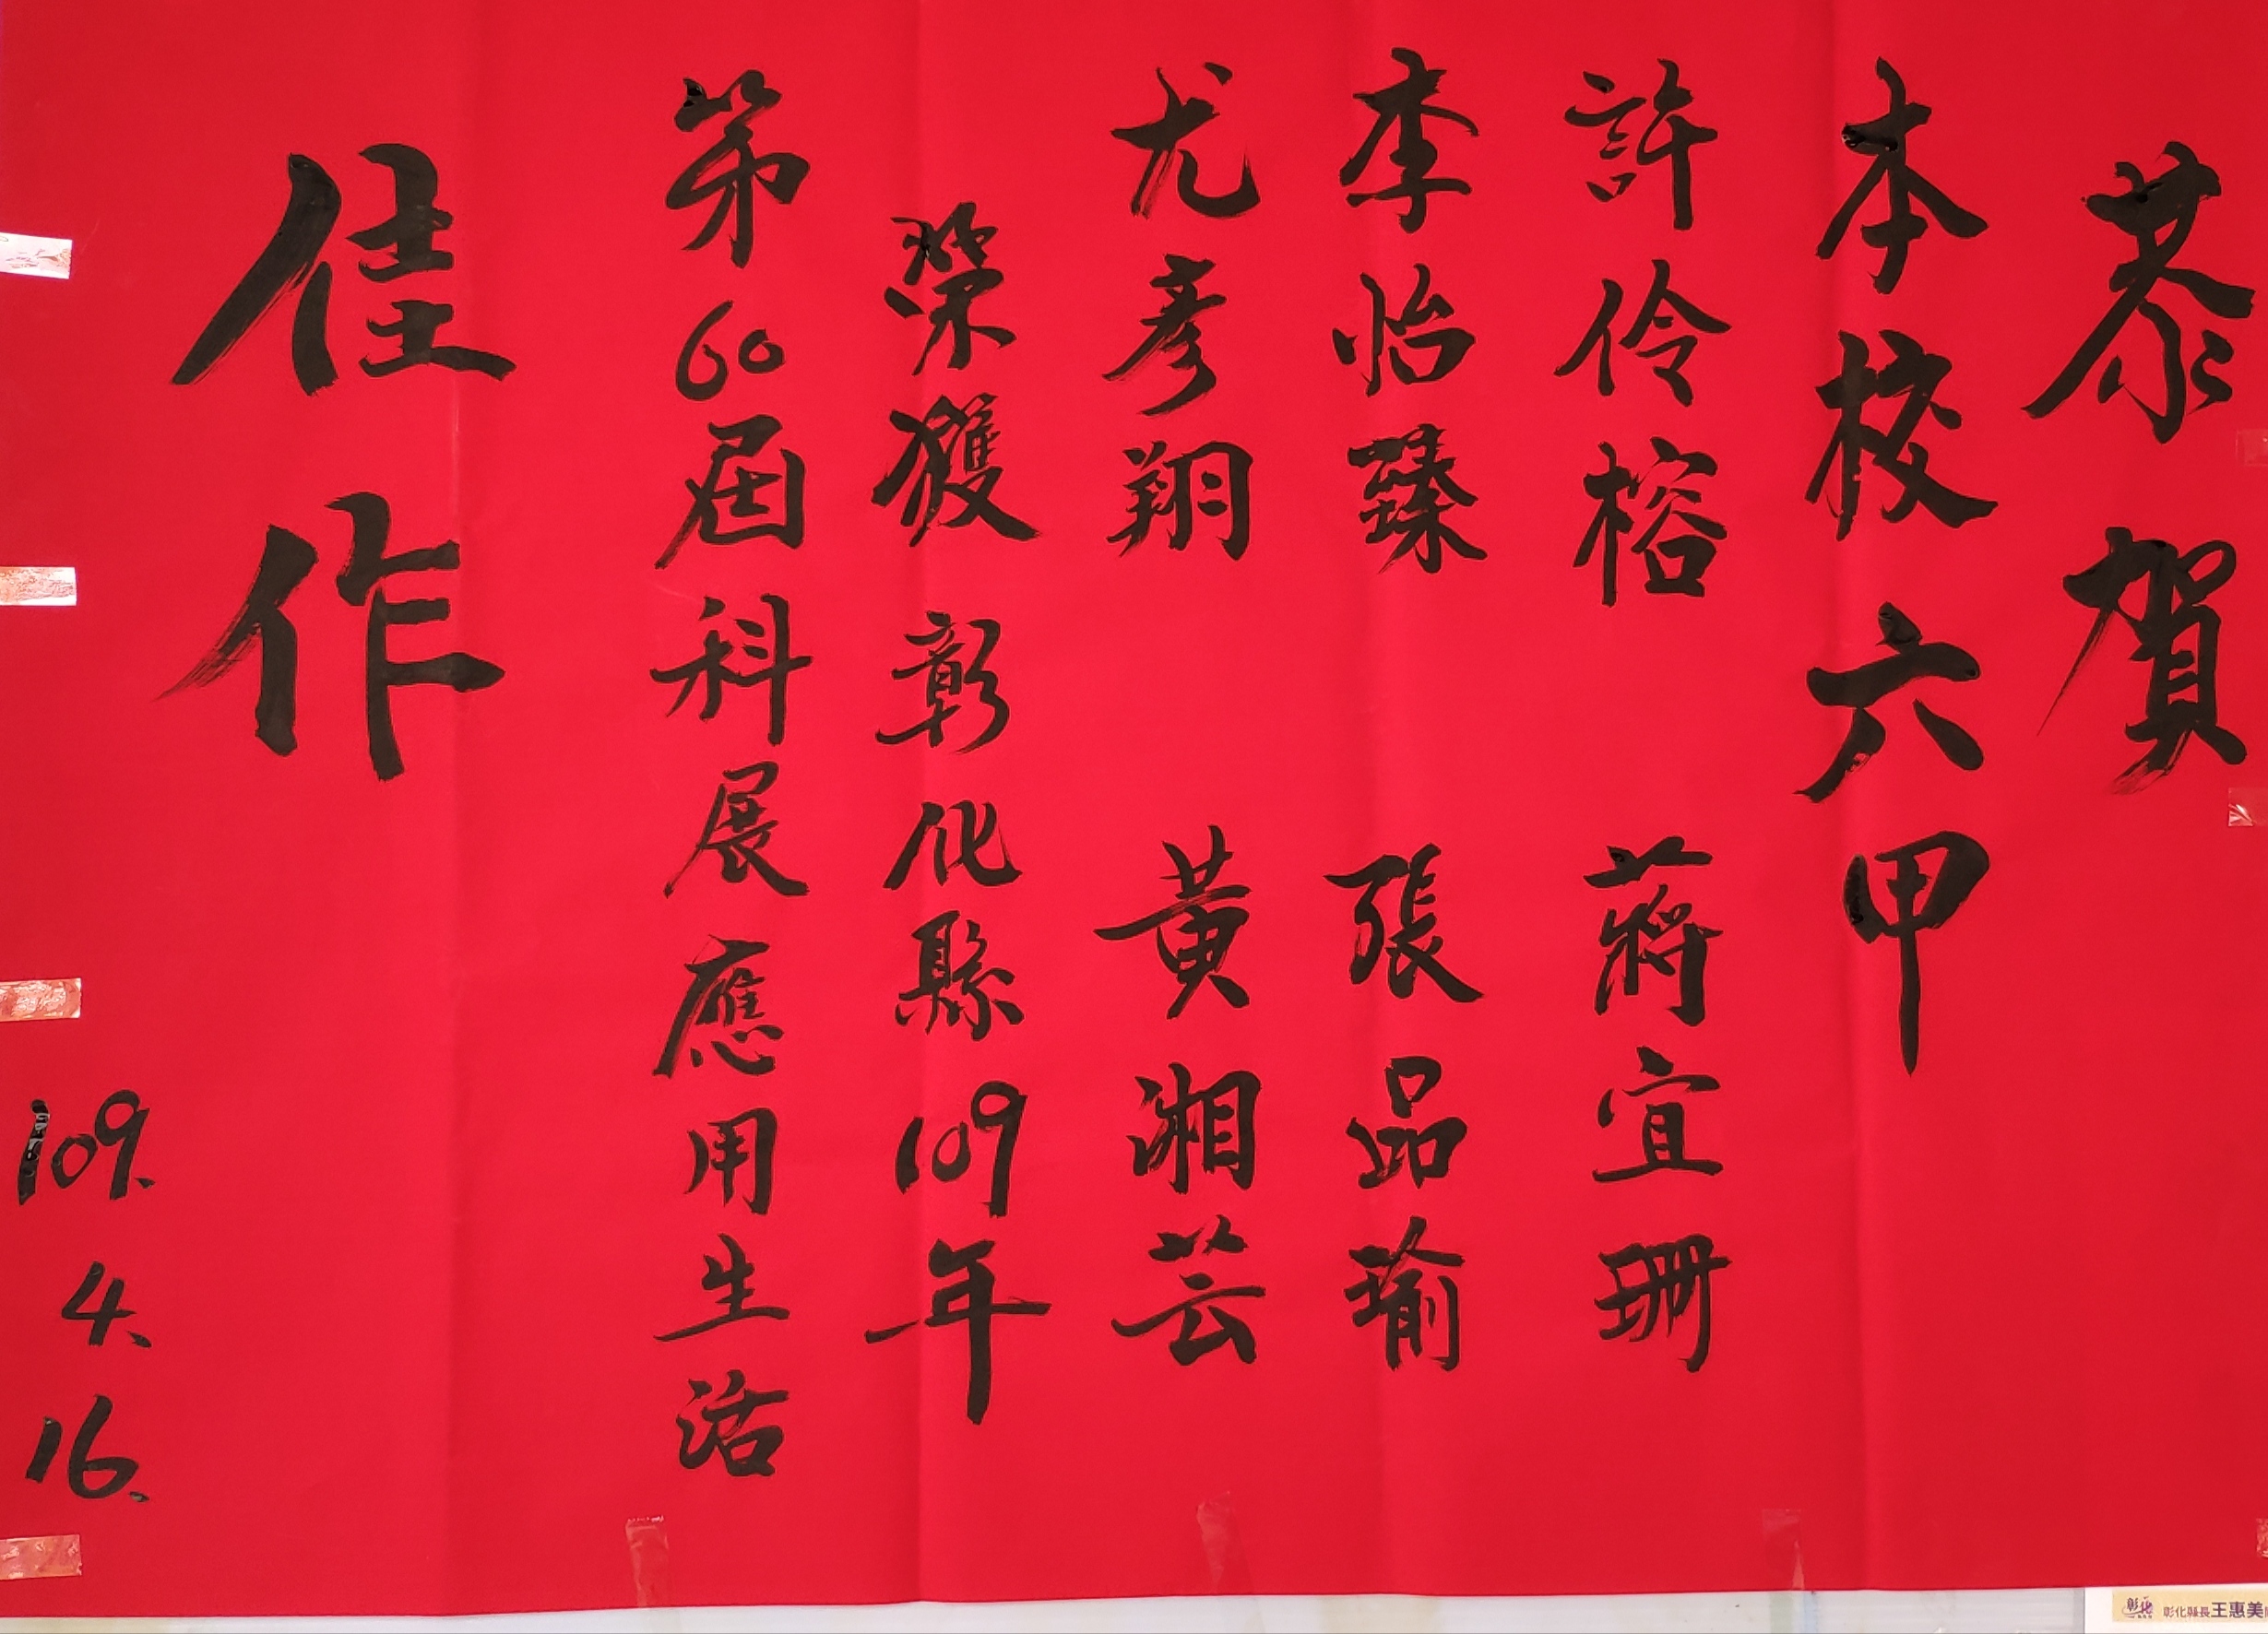 恭賀
本校六甲
許伶榕 蔣宜珊
李怡臻 張品瑜
尤彥翔 黃湘芸
榮獲彰化縣109年
第60屆科展應用生活
佳作
109.4.16.
彰化縣長王惠美